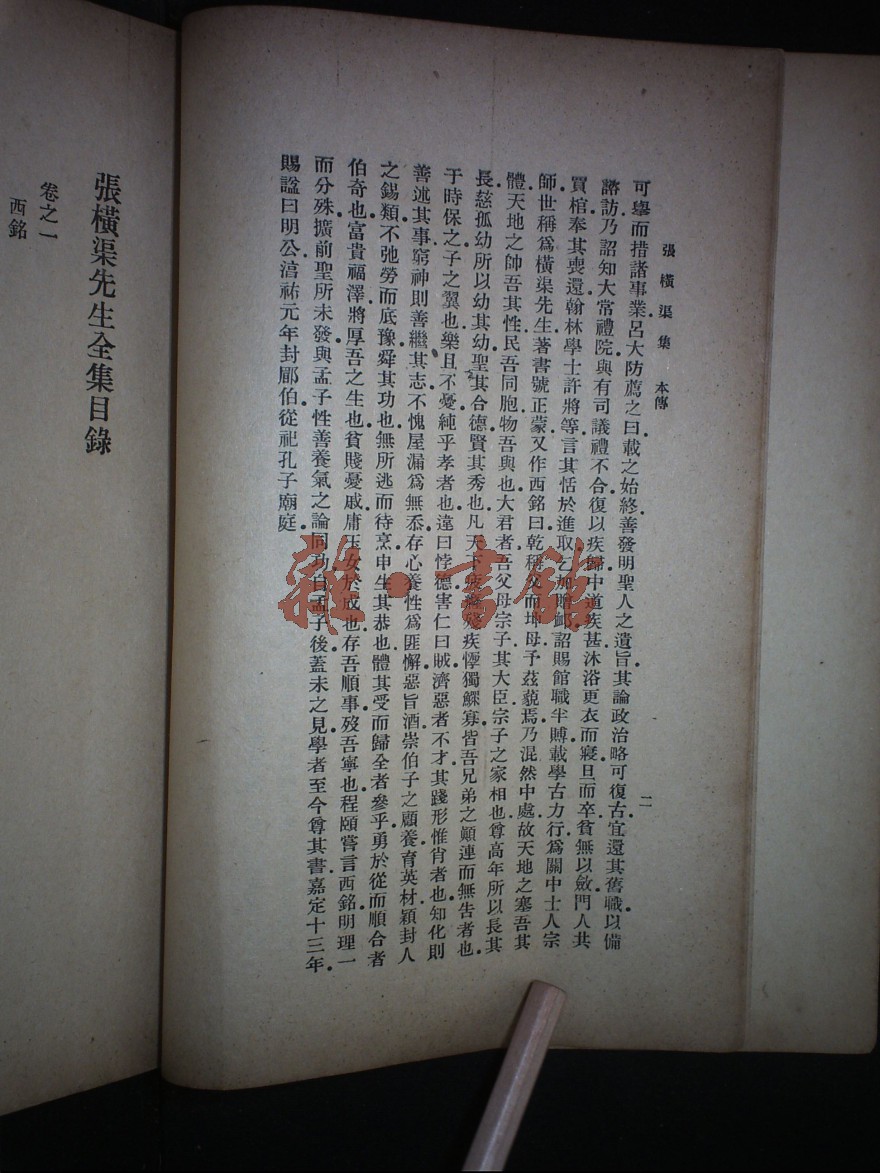 張橫渠集 本傳 二
可舉而措諸事業呂大防薦之曰載之始終善發明聖人之遺旨其論政治略可復古宜還其舊職以備
諮訪乃詔知大常禮院與有司議禮不合復以疾歸中道疾甚沐浴更衣而寢旦而卒貧無以斂門人共
買棺奉其喪還翰林學士許將等言其恬於進取乞加贈卹詔賜館職半賻載學古力行爲關中士人宗
師世稱爲橫渠先生著書號正蒙又作西銘曰乾稱父而坤母予茲藐焉乃混然中處故天地之塞吾其
體天地之帥吾其性民吾同胞物吾與也大君者吾父母宗子其大臣宗子之家相也尊高年所以長其
長慈孤幼所以幼其幼聖其合德賢其秀也凡天下疲癃殘疾惸獨鰥寡皆吾兄弟之顚連而無告者也
于時保之子之翼也樂且不憂純乎孝者也違曰悖德害仁曰賊濟惡者不才其踐形惟肖者也知化則
善述其事窮神則善繼其志不愧屋漏爲無忝存心養性爲匪懈惡旨酒崇伯子之顧養育英材穎封人
之錫類不弛勞而底豫舜其功也無所逃而待烹申生其恭也體其受而歸全者參乎勇於從而順合者
伯奇也富貴福澤將厚吾之生也貧賤憂戚庸玉女於成也存吾順事歿吾寧也程頤嘗言西銘明理一
而分殊擴前聖所未發與孟子性善養氣之論同功自孟子後蓋未之見學者至今尊其書嘉定十三年
賜諡曰明公淳祐元年封郿伯從祀孔子廟庭
張橫渠先生全集目錄
卷之一
西銘
雜·書館